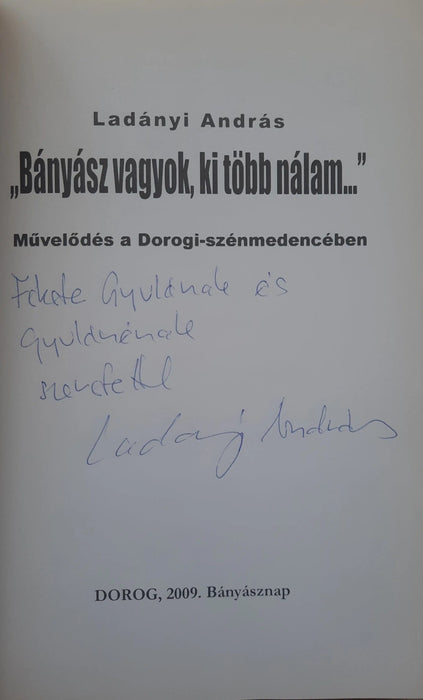 Ladányi András
„Bányász vagyok, ki több nálam..."
Művelődés a Dorogi-szénmedencében
Fekete Gyulának és
Gyulánénak
szeretettel
Ladányi András
DOROG, 2009. Bányásznap